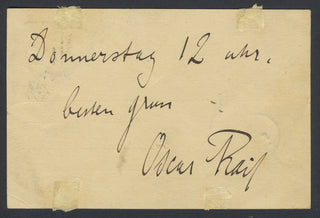 Donnerstag 12 uhr.
besten gruss
Oscar Raif